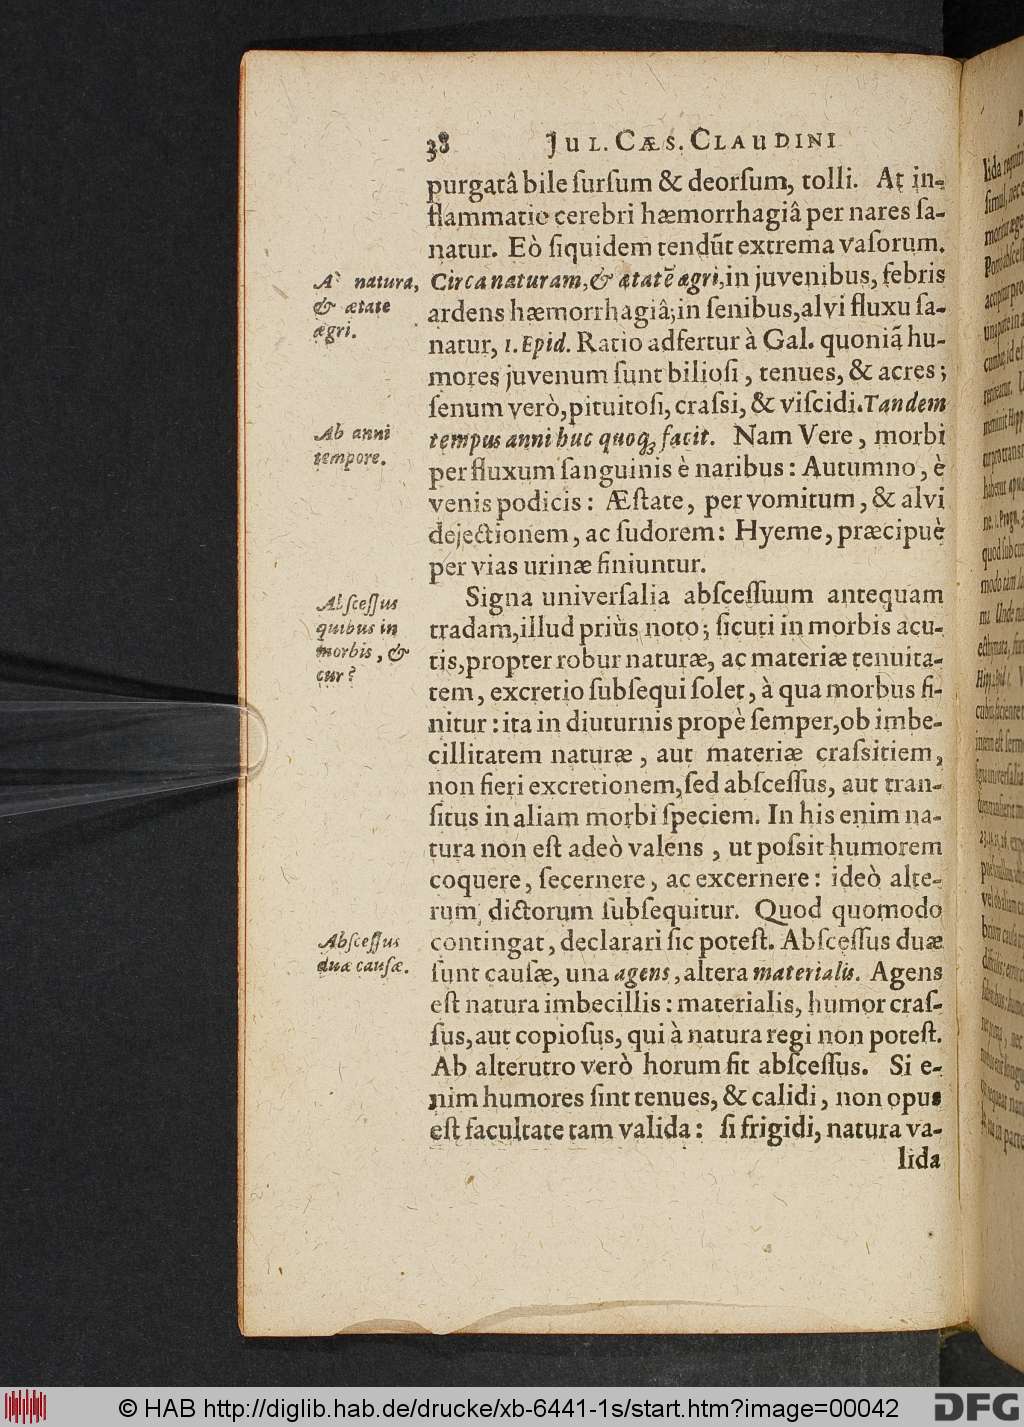 38 JUL. CÆS. CLAUDINI
purgatâ bile ſurſum & deorſum, tolli. At in-
flammatio cerebri hæmorrhagiâ per nares ſa-
natur. Eò ſiquidem tendũt extrema vaſorum.
A` natura,
& ætate
ægri.
Circa naturam, & ætatẽ ægri, in juvenibus, febris
ardens hæmorrhagiâ; in ſenibus, alvi fluxu ſa-
natur, 1. Epid. Ratio adfertur à Gal. quoniã hu-
mores juvenum ſunt bilioſi, tenues, & acres;
ſenum verò, pituitoſi, craſsi, & viſcidi. Tandem
Ab anni
tempore.
tempus anni huc quoq; facit. Nam Vere, morbi
per fluxum ſanguinis è naribus: Autumno, è
venis podicis: Æſtate, per vomitum, & alvi
dejectionem, ac ſudorem: Hyeme, præcipuè
per vias urinæ finiuntur.
Abſceſſus
quibus in
morbis, &
cur?
Signa univerſalia abſceſſuum antequam
tradam, illud priùs noto; ſicuti in morbis acu-
tis, propter robur naturæ, ac materiæ tenuita-
tem, excretio ſubſequi ſolet, à qua morbus fi-
nitur: ita in diuturnis propè ſemper, ob imbe-
cillitatem naturæ, aut materiæ craſsitiem,
non fieri excretionem, ſed abſceſſus, aut tran-
ſitus in aliam morbi ſpeciem. In his enim na-
tura non eſt adeò valens, ut poſsit humorem
coquere, ſecernere, ac excernere: ideò alte-
rum dictorum ſubſequitur. Quod quomodo
Abſceſſus
duæ cauſæ.
contingat, declarari ſic poteſt. Abſceſſus duæ
ſunt cauſæ, una agens, altera materialis. Agens
eſt natura imbecillis: materialis, humor craſ-
ſus, aut copioſus, qui à natura regi non poteſt.
Ab alterutro verò horum fit abſceſſus. Si e-
nim humores ſint tenues, & calidi, non opus
eſt facultate tam valida: ſi frigidi, natura va-
lida
© HAB http://diglib.hab.de/drucke/xb-6441-1s/start.htm?image=00042
DFG